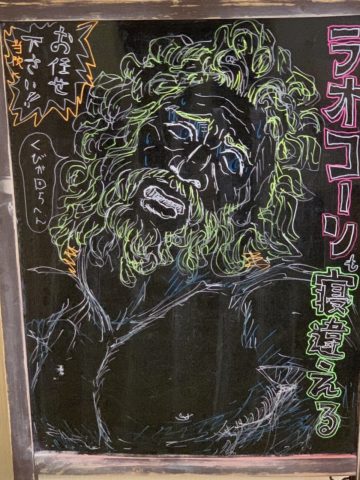 ラオコーンも寝違える
お任せ
下さい!!
当院へ
くびが回らへん